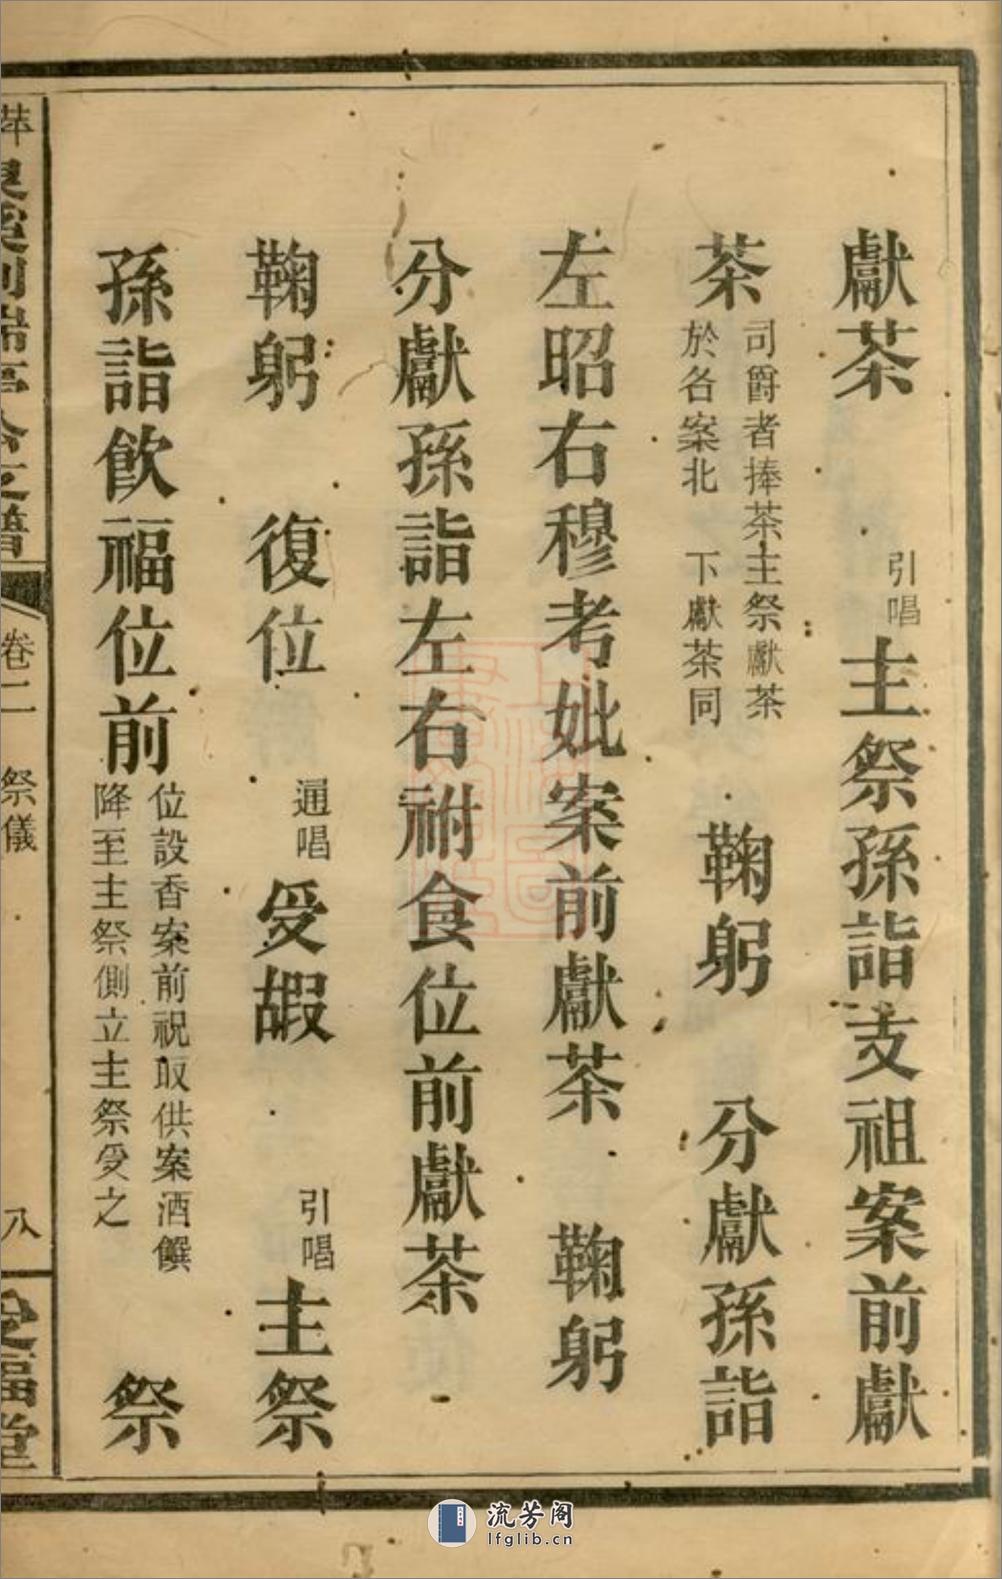 獻茶 引唱 主祭孫詣支祖案前獻
茶 司爵者捧茶主祭獻茶
於各案北 下獻茶同 鞠躬 分獻孫詣
左昭右穆考妣案前獻茶 鞠躬
分獻孫詣左右祔食位前獻茶
鞠躬 復位 通唱 受嘏 引唱 主祭
孫詣飲福位前 位設香案前祝取供案酒饌
降至主祭側立主祭受之 祭
卷二 祭儀 八 受福堂
流芳阁
lfglib.cn